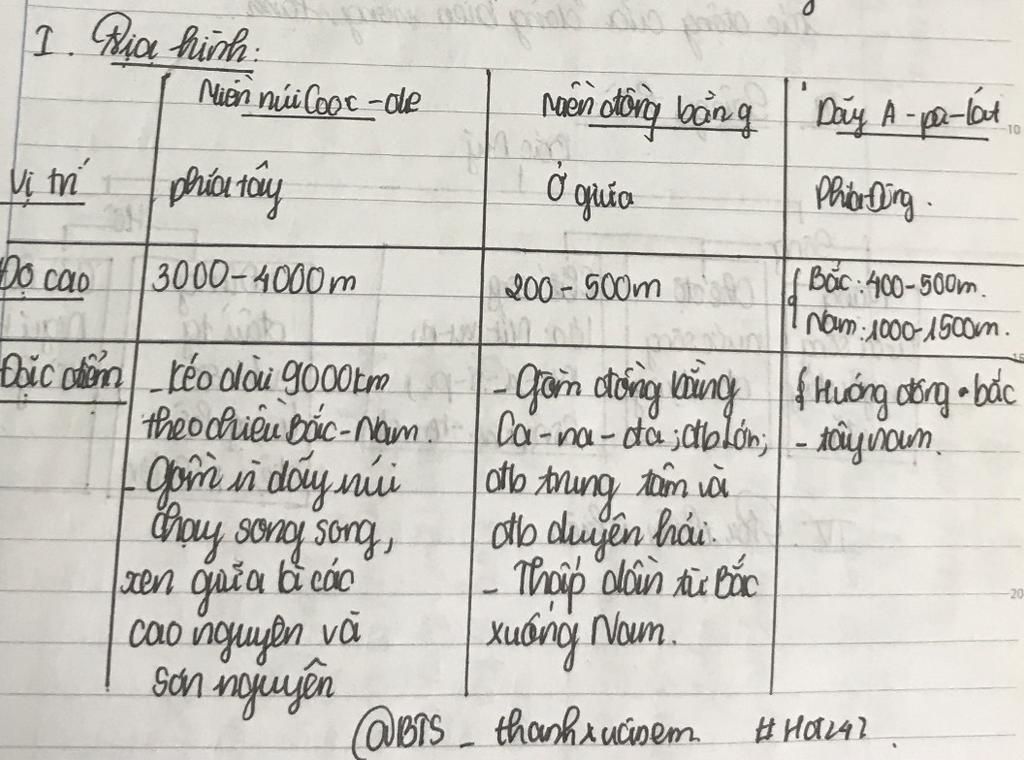 I. Địa hình:
Miền núi Cooc-đe
Miền đồng bằng
Dãy A-pa-lát
Vị trí
phía tây
Ở giữa
Phía Đông.
Độ cao
3000-4000m
200-500m
Bắc: 400-500m.
Nam: 1000-1500m.
Đặc điểm
- Kéo dài 9000km
theo chiều Bắc-Nam.
- Gồm n dãy núi
chạy song song,
xen giữa là các
cao nguyên và
sơn nguyên
- Gồm đồng bằng
Ca-na-đa; đb lớn;
đb trung tâm và
đb duyên hải.
- Thấp dần từ Bắc
xuống Nam.
Hướng đông-bắc
- tây nam.
@BTS_thanhxuanem #Hoi247
10
15
20